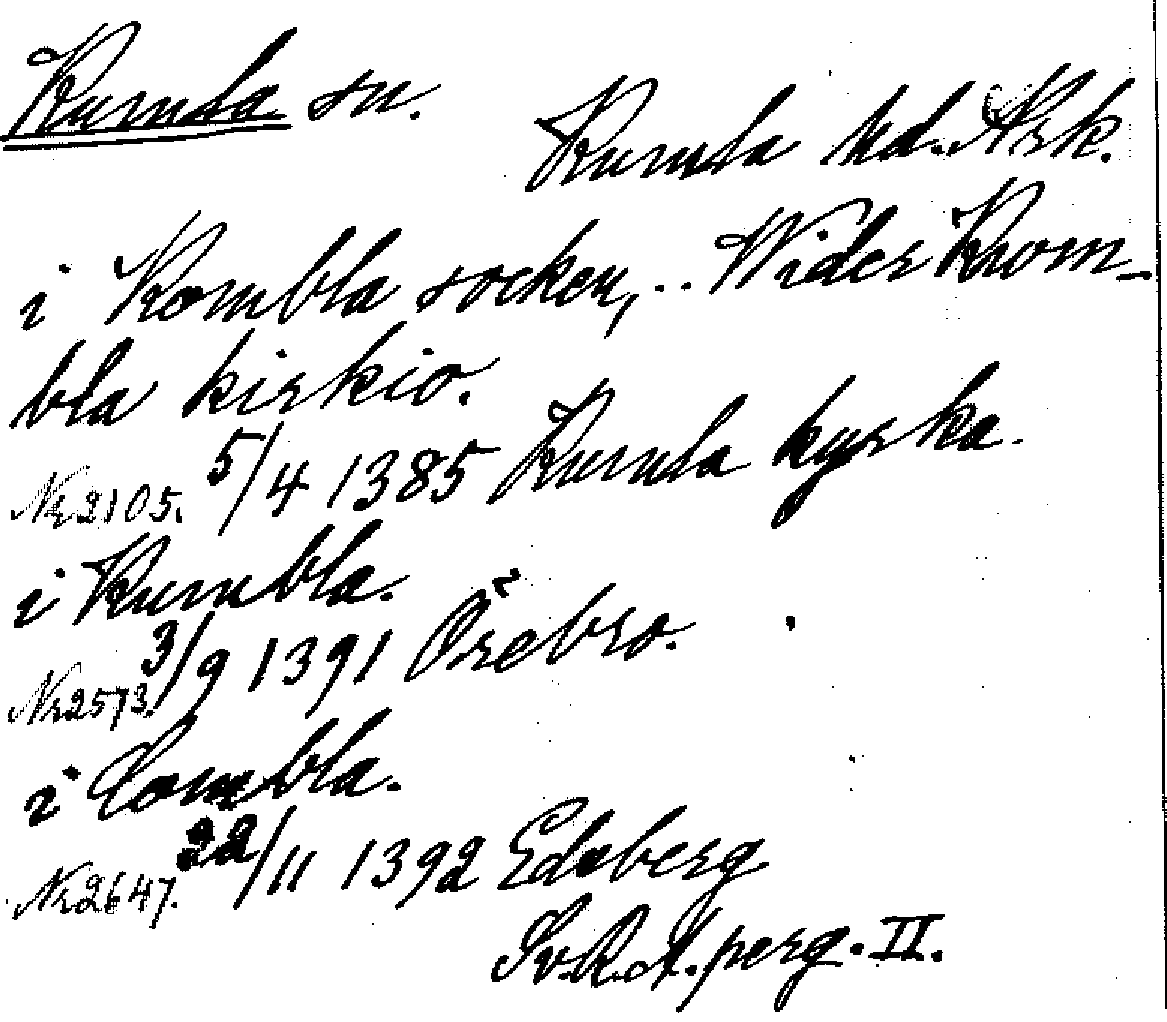 Kumla sn.
Kumla hd. Ńrk.
i Kombla socken, .. Wider Kwom-
bla kirkio.
Nr 2105. 5/4 1385 Kumla kyrka.
i Kumbla.
Nr 2573. 3/9 1391 Örebro.
i Combla.
Nr 2647. 22/11 1392 Edsberg
Sv.R.A. perg. II.